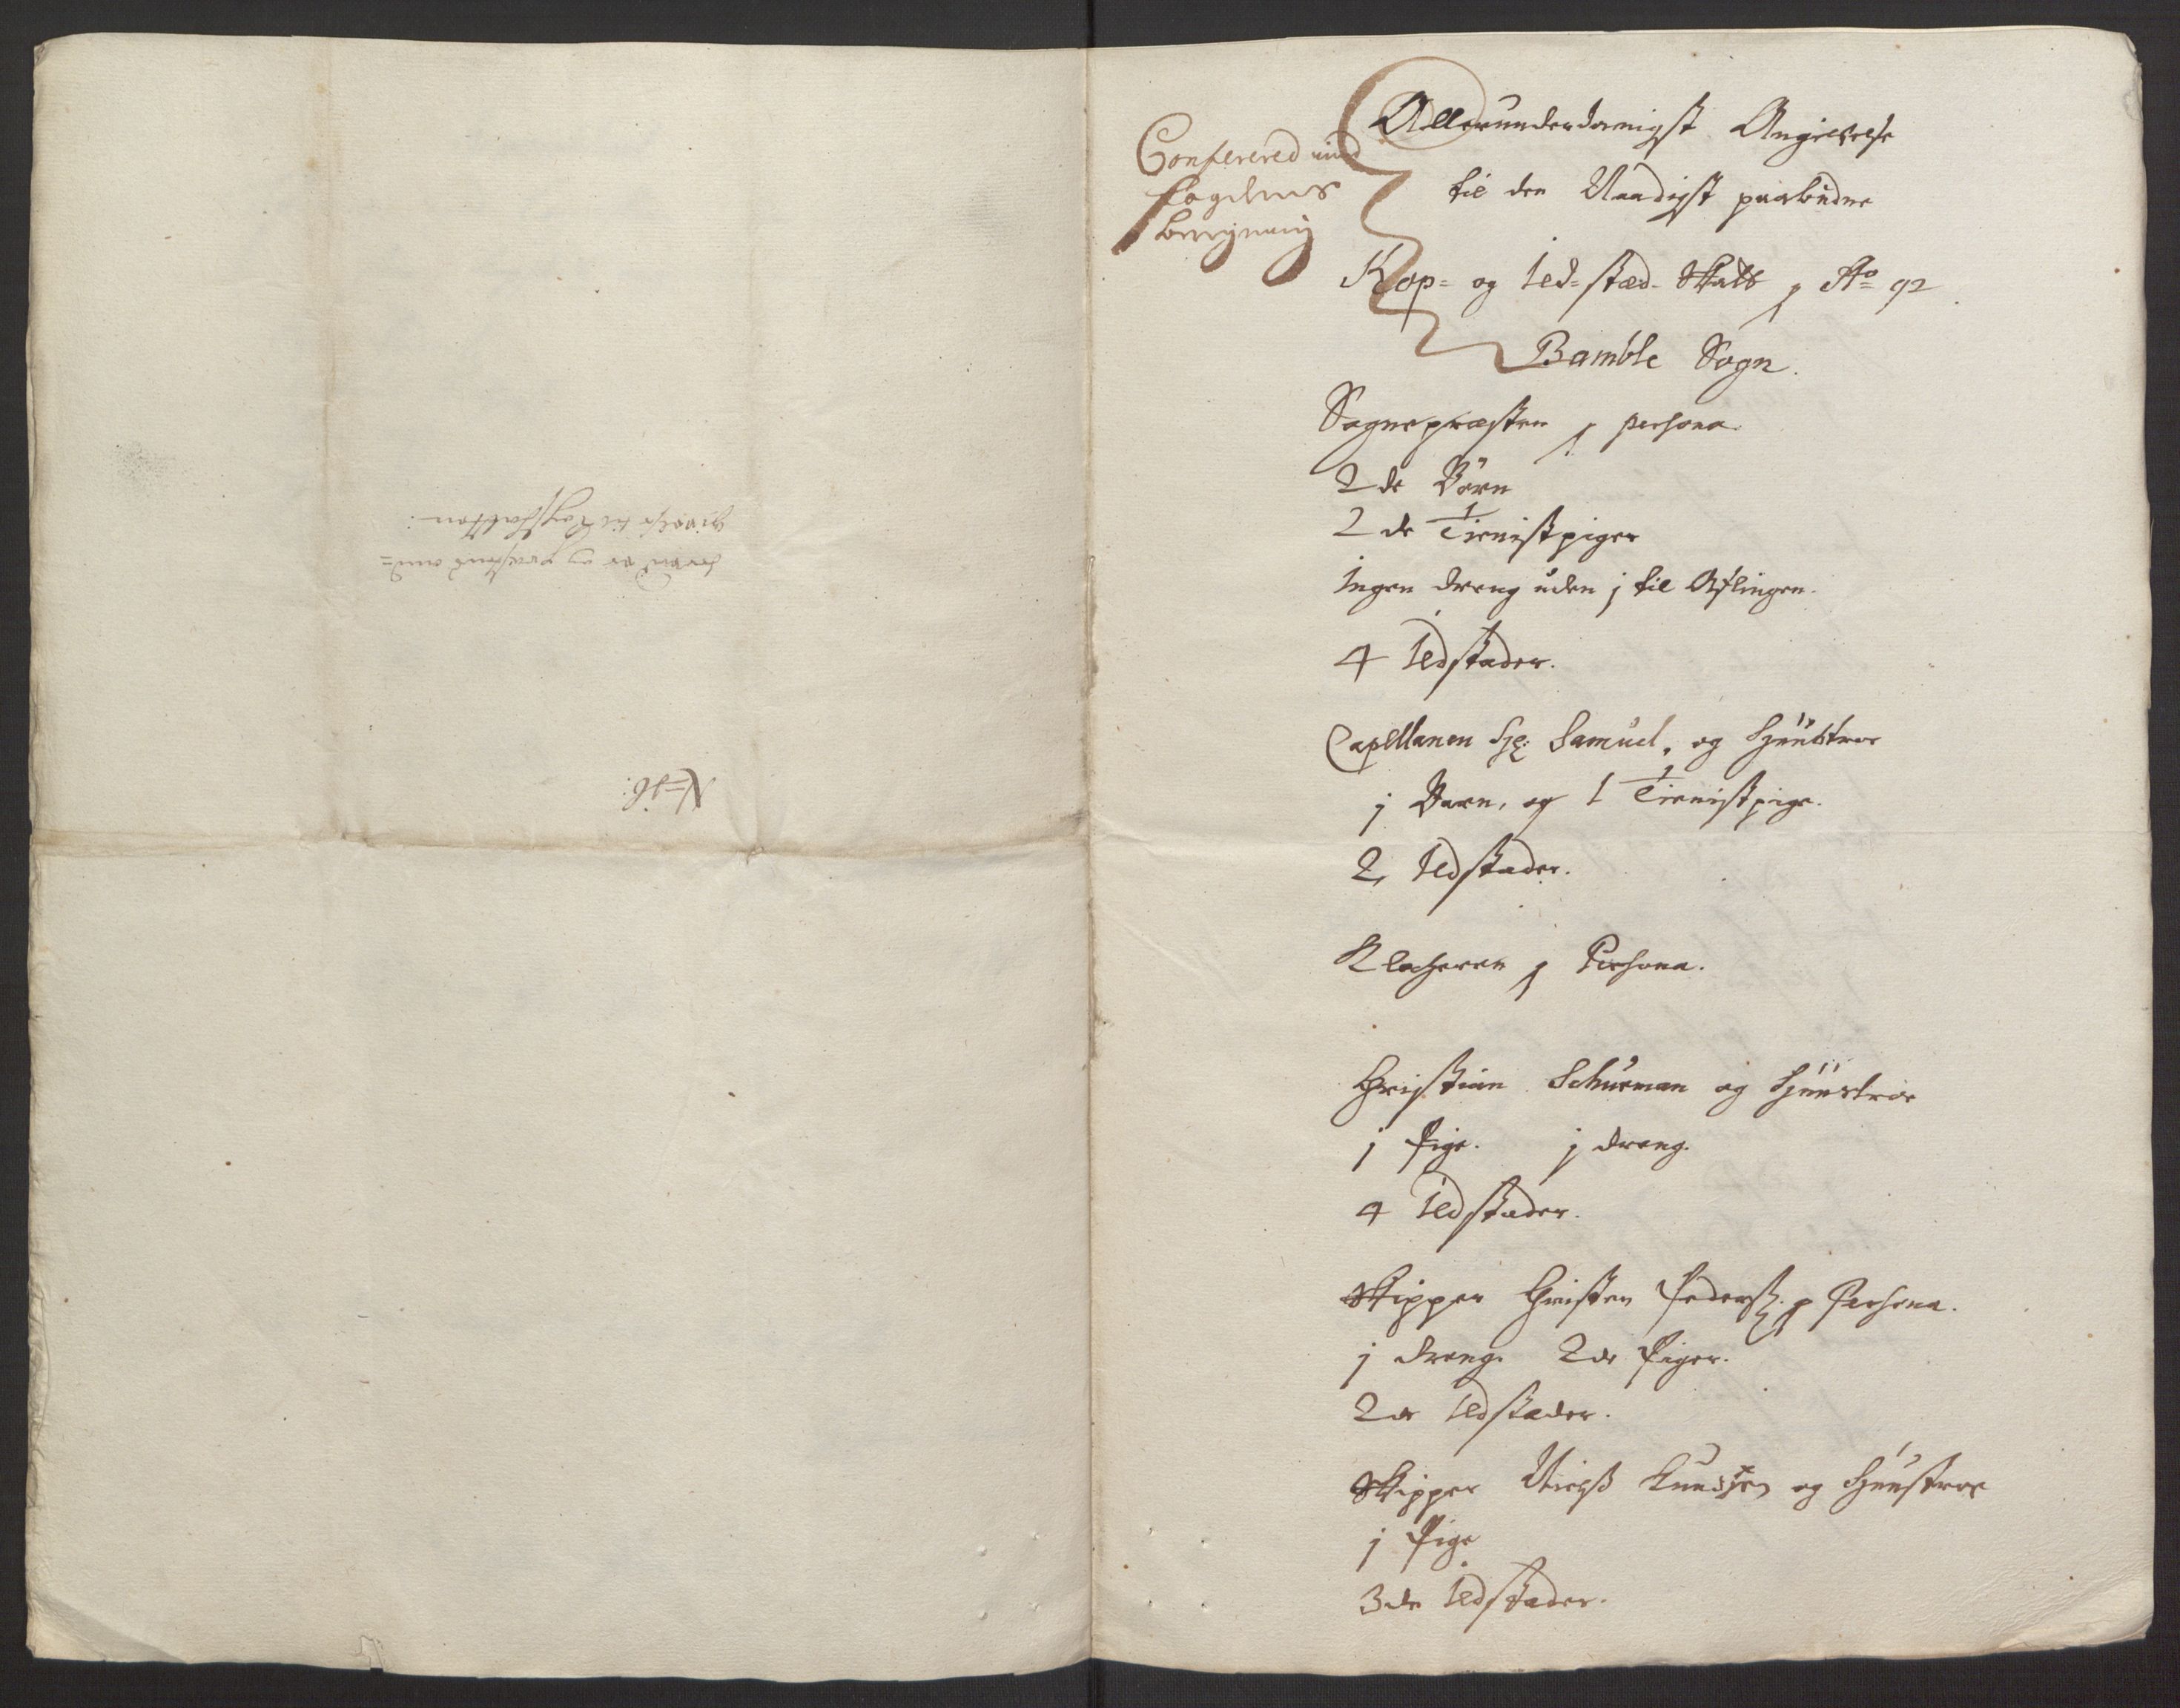 giwelse til Kopschatten:
N=16:
Conferered med
fogdens
beregning
Allerunderdanigst Angivelse
til den Naadigst paabudne
Kop= og Ild=stæd-Skatt p Ao 92
Bamble Sogn.
Sognepræsten p persona.
2 de Börn
2 de Tienistpiger
Ingen dreng uden j til Aflingen.
4 Ildstæder.
Capellanen Hr: Samuel, og Hüústroe
j Barn, og 1 Tienistpige.
2 Ildstæder.
Klocheren p Persona.
Christian Schurman og Hüústroe
j Pige. j dreng.
4 Ildstæder.
Skipper Christen Peders: p Persona.
j dreng. 2de Piger.
2de Ildstæder.
Skipper Nielß Knudsen og Hüústroe
j Pige
3de Ildstæder.